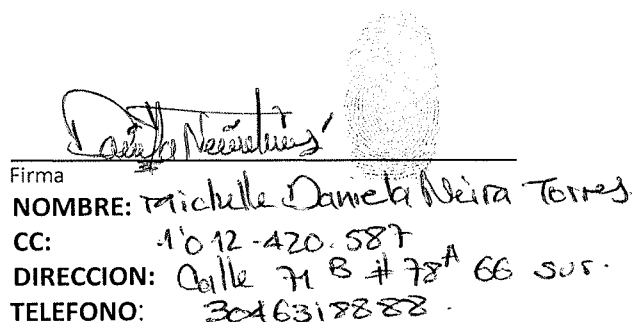 Firma
NOMBRE: Michelle Daniela Neira Torres.
CC: 1'012.420.587
DIRECCION: Calle 71 B # 78A 66 sur.
TELEFONO: 3046318888.